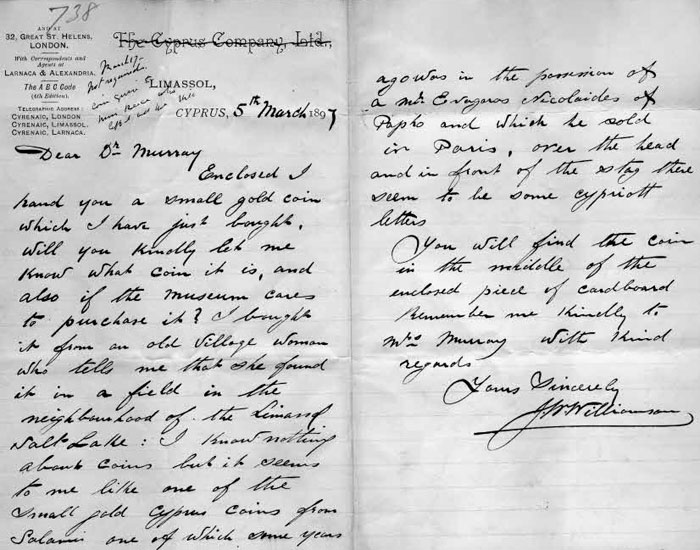 738
AND AT
32, GREAT ST. HELENS,
LONDON.
With Correspondents and
Agents at
LARNACA & ALEXANDRIA.
The A B C Code
(4th Edition).
TELEGRAPHIC ADDRESS:
CYRENAIC, LONDON
CYRENAIC, LIMASSOL,
CYRENAIC, LARNACA.
March 17
Not required.
coin
The Cyprus Company, Ltd.,
LIMASSOL,
CYPRUS, 5th March 1897
Dear Dr Murray
Enclosed I
hand you a small gold coin
which I have just bought.
Will you Kindly let me
Know what coin it is, and
also if the Museum cares
to purchase it? I bought
it from an old Village woman
who tells me that she found
it in a field in the
neighbourhood of the Limassol
Salt Lake: I Know nothing
about coins but it seems
to me like one of the
small gold Cyprus coins from
Salamis one of which some years
ago was in the possession of
a Mr. Evagoras Nicolaides of
Papho and which he sold
in Paris, over the head
and in front of the stag there
seem to be some cypriott
letters
You will find the coin
in the middle of the
enclosed piece of cardboard
Remember me Kindly to
Mrs Murray with Kind
regards
Yours Sincerely
J W Williamson